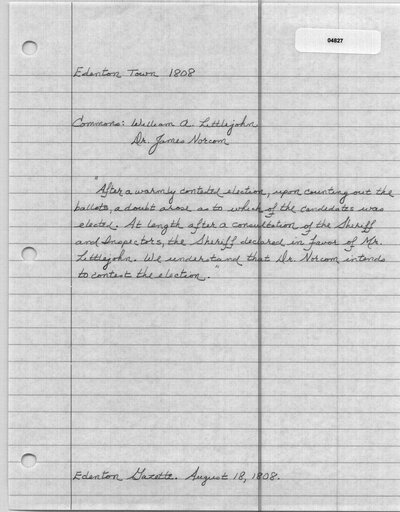 04827
Edenton Town 1808
Commons: William A. Littlejohn
Dr. James Norcom
"After a warmly contested election, upon counting out the
ballots, a doubt arose as to which of the candidates was
elected. At length after a consultation of the Sheriff
and Inspectors, the Sheriff declared in favor of Mr.
Littlejohn. We understand that Dr. Norcom intends
to contest the election."
Edenton Gazette. August 18, 1808.